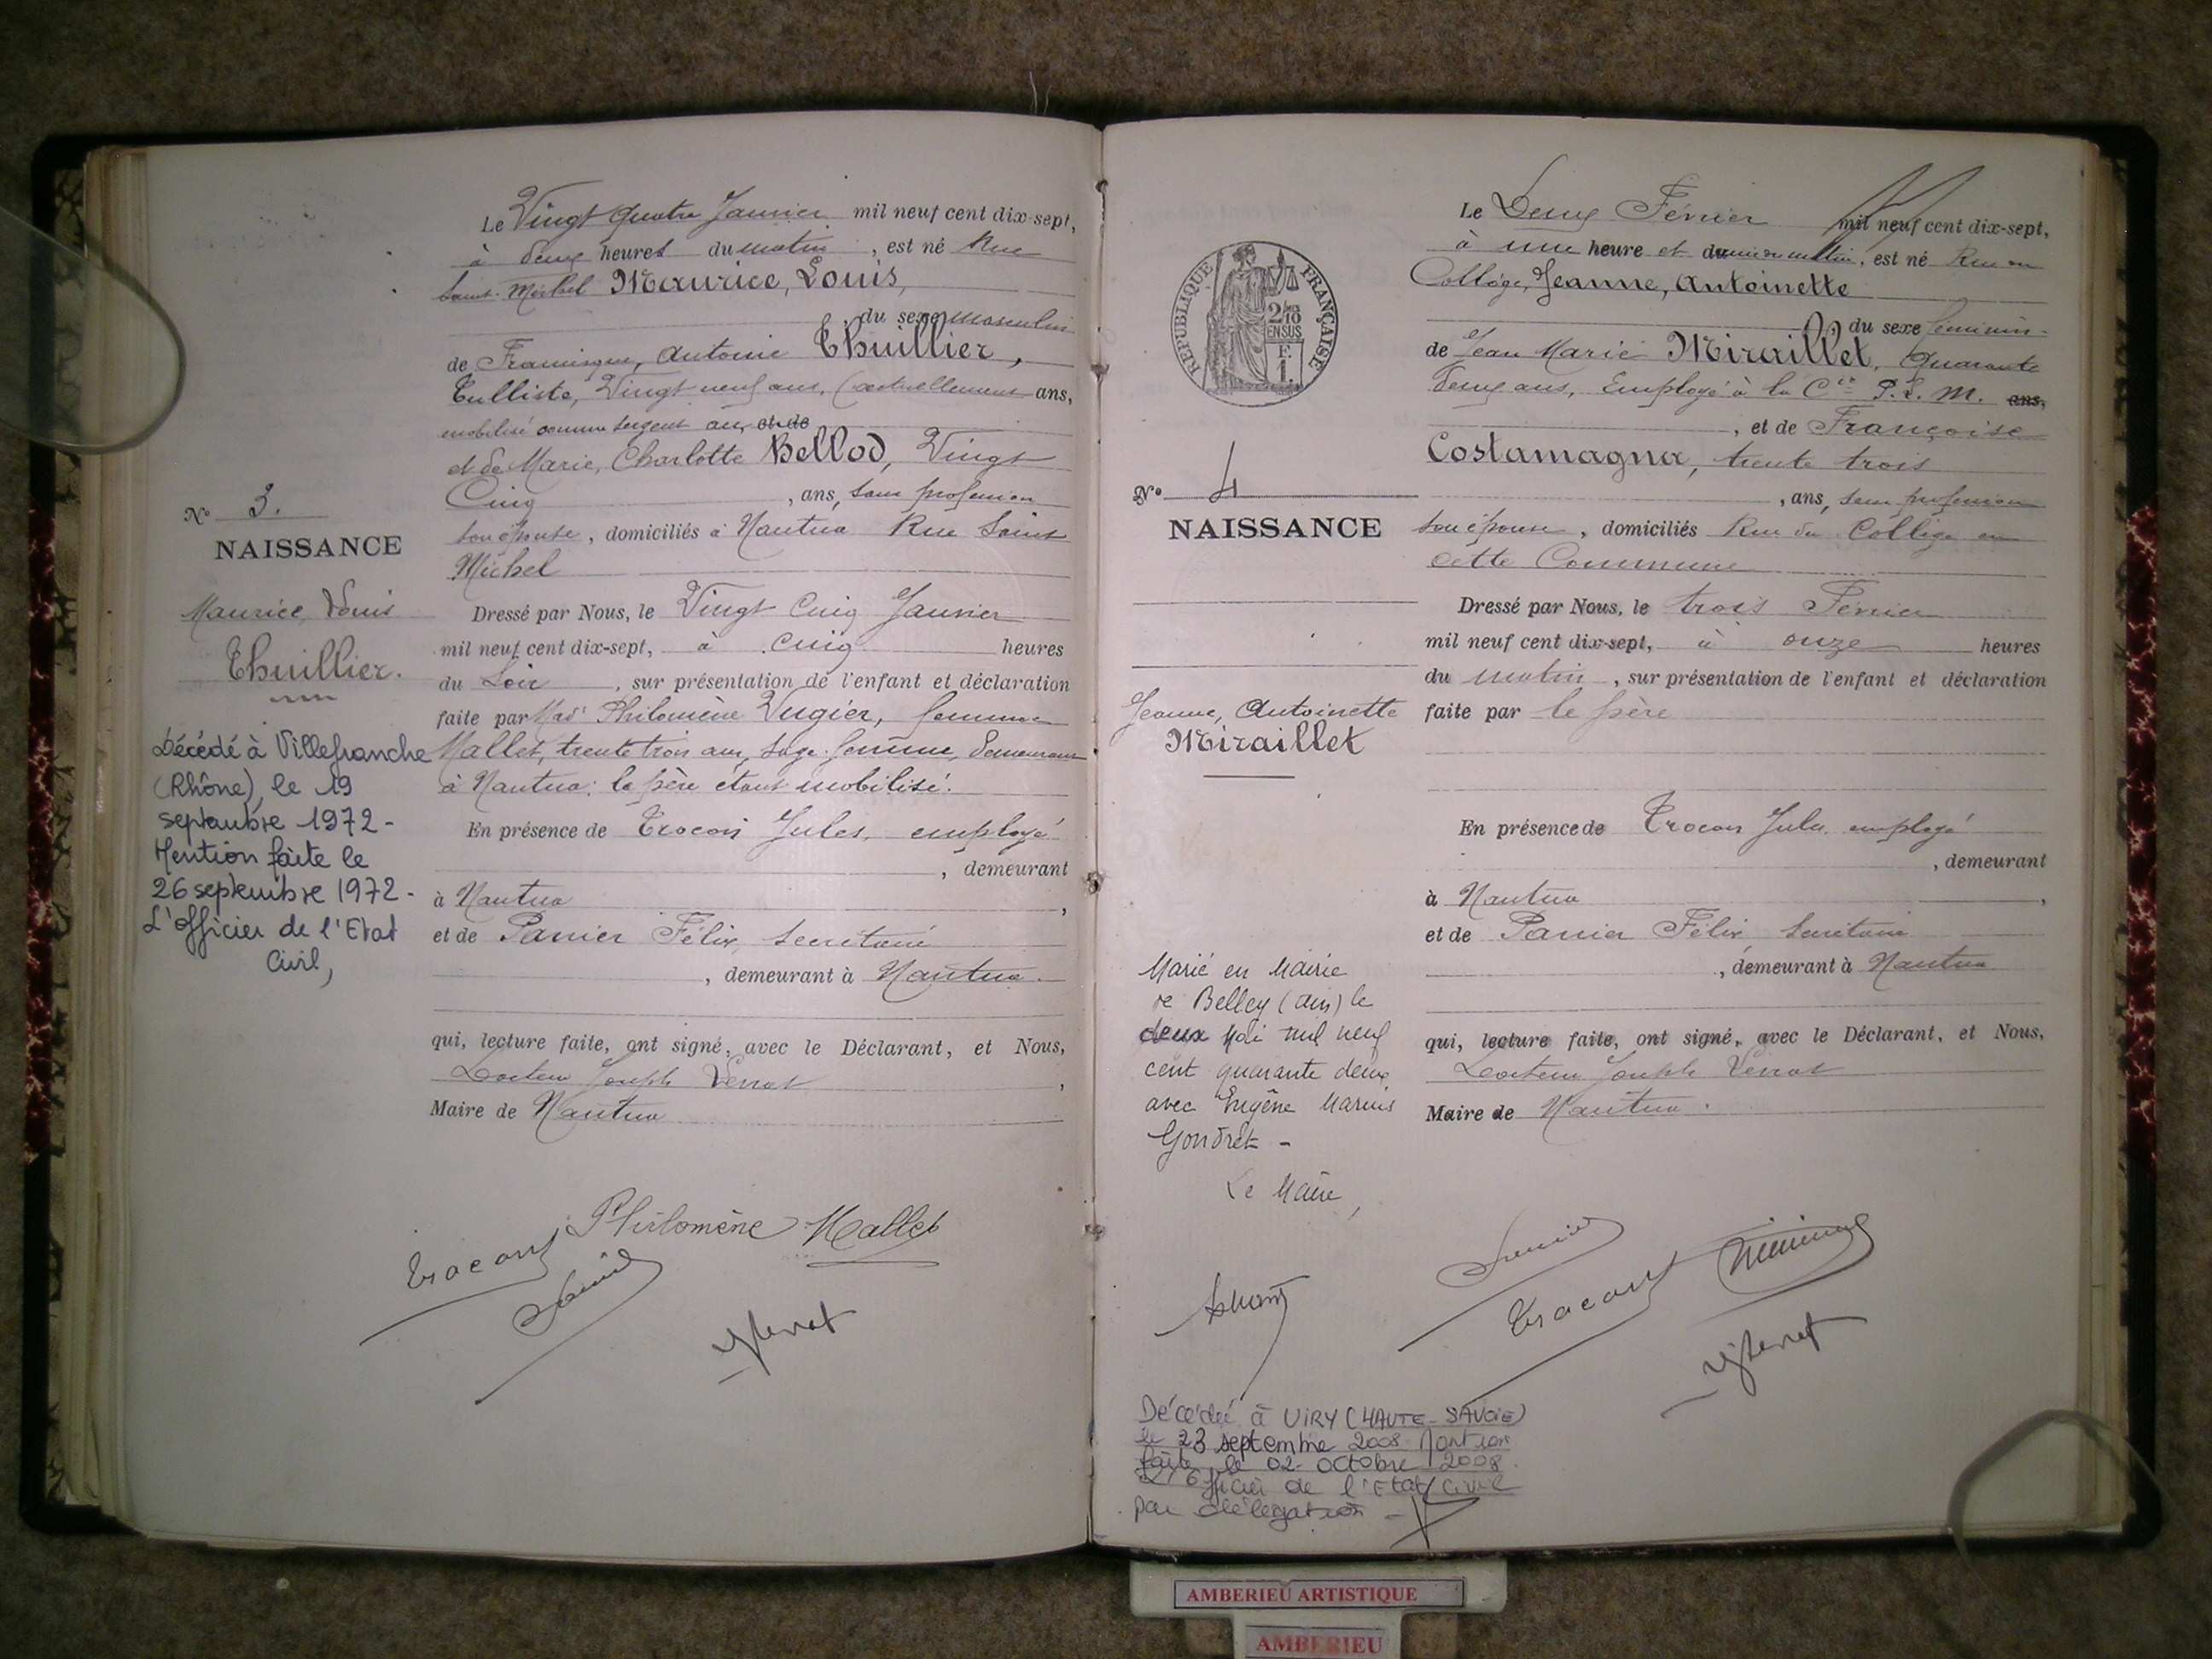 Le Vingt Quatre Janvier mil neuf cent dix-sept,
à deux heures du matin, est né Rue
Saint-Michel Maurice, Louis,
, du sexe masculin
de Francisque, Antoine Thuillier,
Tulliste, Vingt neuf ans, (actuellement ans,
mobilisé comme sergent au, et de
et de Marie, Charlotte Bellod, Vingt
Cinq, ans, sans profession
son épouse, domiciliés à Nantua Rue Saint
Michel
Dressé par Nous, le Vingt Cinq Janvier
mil neuf cent dix-sept, à cinq heures
du Soir, sur présentation de l'enfant et déclaration
faite par Mad' Philomène Vugier, femme
Mallet, trente trois ans, sage-femme, demeurant
à Nantua; le père étant mobilisé.
En présence de Trocon Jules, employé
, demeurant
à Nantua,
et de Panier Félix, secrétaire
, demeurant à Nantua.
qui, lecture faite, ont signé, avec le Déclarant, et Nous,
Docteur Joseph Verrat,
Maire de Nantua
No 3.
NAISSANCE
Maurice, Louis
Thuillier.
Décédé à Villefranche
(Rhône), le 19
septembre 1972-
Mention faite le
26 septembre 1972-
L'Officier de l'Etat
Civil,
Philomène Mallet
Le Deux Février mil neuf cent dix-sept,
à une heure et demie du matin, est né Rue du
Collège, Jeanne, Antoinette
du sexe féminin-
de Jean Marie Miraillet, Quarante
deux ans, Employé à la Cie P.L.M. ans,
, et de Françoise
Costamagna, trente trois
, ans, sans profession
son épouse, domiciliés Rue du Collège en
cette Commune
Dressé par Nous, le trois Février
mil neuf cent dix-sept, à onze heures
du matin, sur présentation de l'enfant et déclaration
faite par le père
En présence de Trocon Jules employé
, demeurant
à Nantua,
et de Panier Félix secrétaire
, demeurant à Nantua
qui, lecture faite, ont signé, avec le Déclarant, et Nous,
Docteur Joseph Verrat
Maire de Nantua.
RÉPUBLIQUE FRANÇAISE
2/10
EN SUS
F.
1.
No 4
NAISSANCE
Jeanne, Antoinette
Miraillet
Marié en Mairie
de Belley (Ain) le
deux Mai mil neuf
cent quarante deux
avec Eugène Marius
Gondret -
Le Maire,
Décédée à VIRY (HAUTE-SAVOIE)
le 23 septembre 2008. Mention
faite le 02 Octobre 2008.
L'Officier de l'Etat Civil
par délégation -
AMBERIEU ARTISTIQUE
AMBERIEU